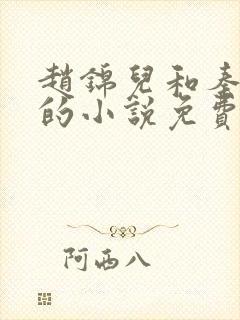 趙錦兒和秦
的小說免費
阿西八